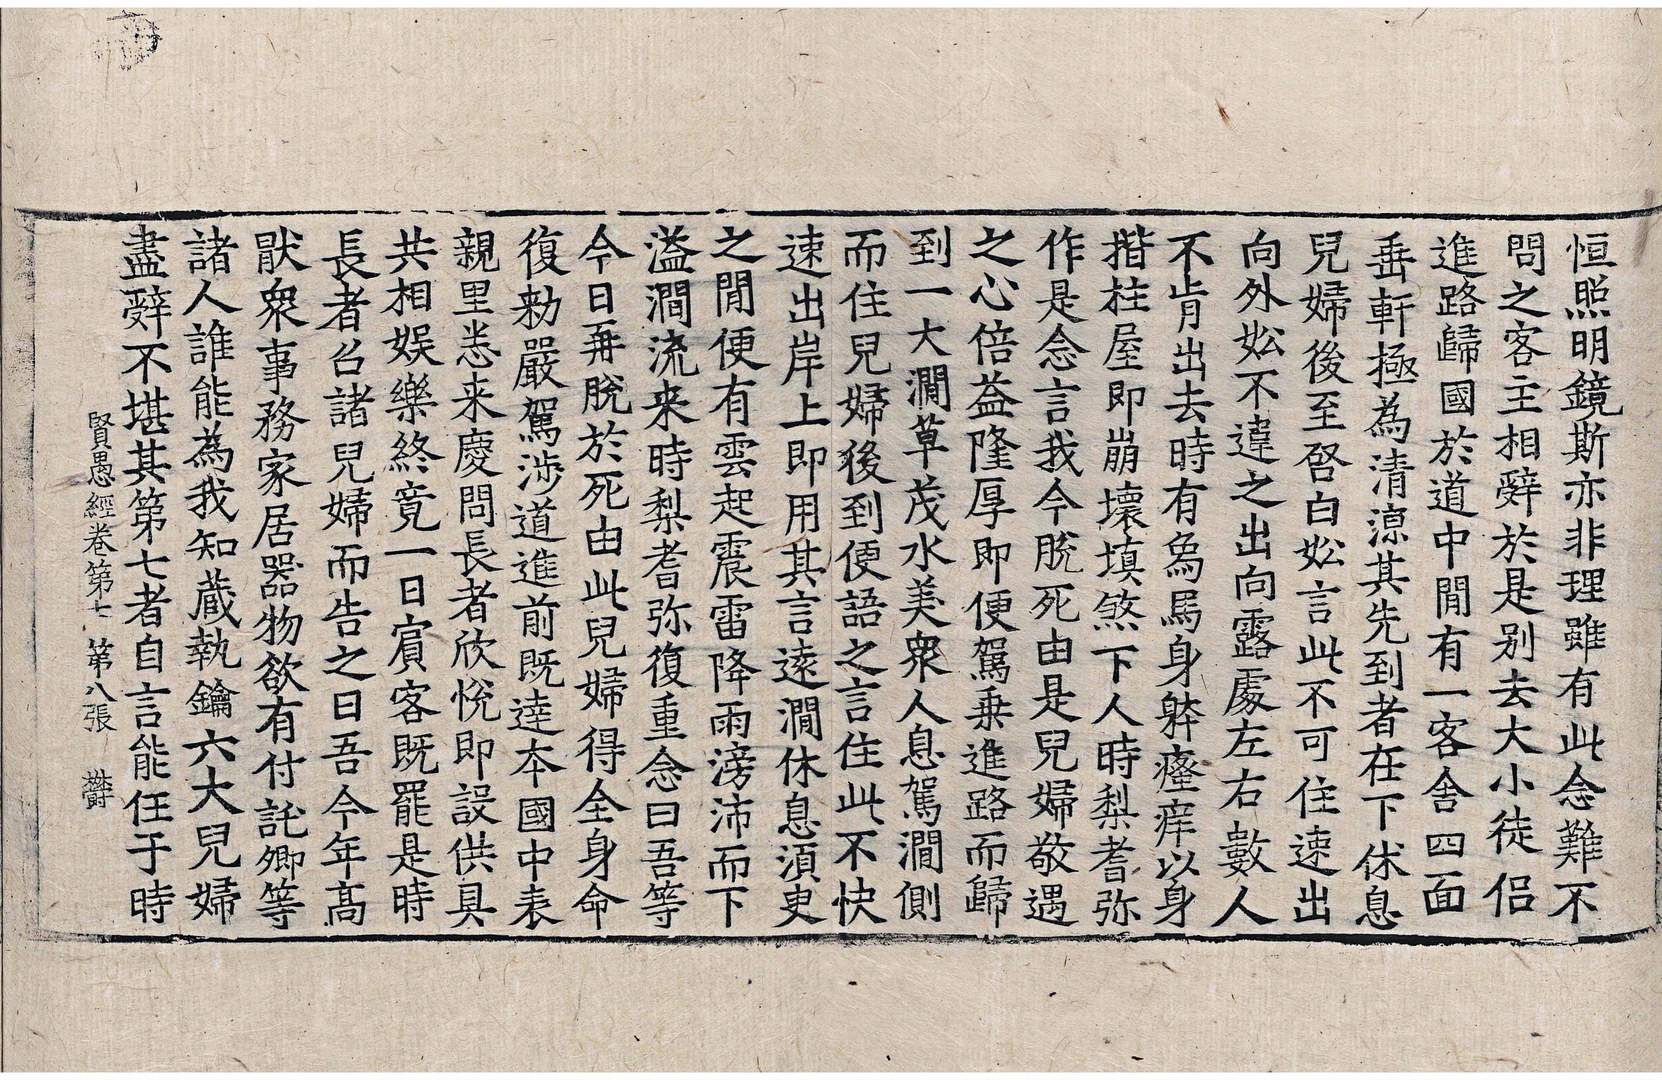 恒照明鏡斯亦非理雖有此念難不
問之客主相辤於是別去大小徒侣
進路歸國於道中閒有一客舎四面
垂軒極為清涼其先到者在下休息
兒婦後至啓白妐言此不可住速出
向外妐不違之出向露處左右數人
不肯出去時有烏馬身躰癢痒以身
揩柱屋即崩壞填煞下人時梨耆弥
作是念言我今脫死由是兒婦敬遇
之心倍益隆厚即便駕乗進路而歸
到一大澗草茂水美衆人息駕澗側
而住兒婦後到便語之言住此不快
速出岸上即用其言遠澗休息湏叟
之閒便有雲起震雷降雨滂沛而下
溢澗流来時梨耆弥復重念曰吾等
今日再脫於死由此兒婦得全身命
復勑嚴駕涉道進前既達本國中表
親里悉来慶問長者欣悅即設供具
共相娛樂終竟一日賔客既罷是時
長者召諸兒婦而告之曰吾今年髙
猒衆事務家居器物欲有付託卿等
諸人誰能為我知蔵執鑰六大兒婦
盡辤不堪其第七者自言能任于時
賢愚經卷第七 第八張 欝